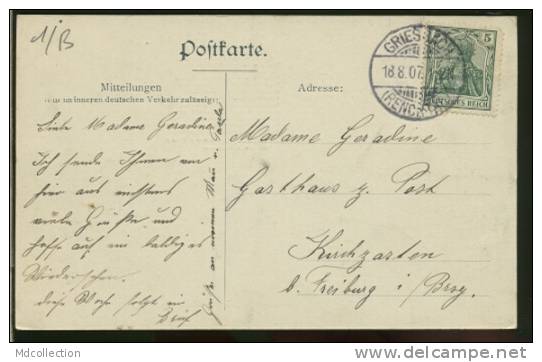 1/B
Postkarte.
Mitteilungen
(nur im inneren deutschen Verkehr zulässig)
Adresse:
GRIESBACH
18.8.07.
(RENCHTAL)
5
DEUTSCHES REICH
Liebe Madame Geradine
Ich sende Ihnen von
hier aus
viele Grüße und
hoffe auf ein baldiges
Wiedersehen.
diese Woche folgt ein
Brief
Grüße an
Madame Geradine
Gasthaus z. Post
Kirchzarten
b. Freiburg i/Brsg.
MDcollection
www.delcampe.net